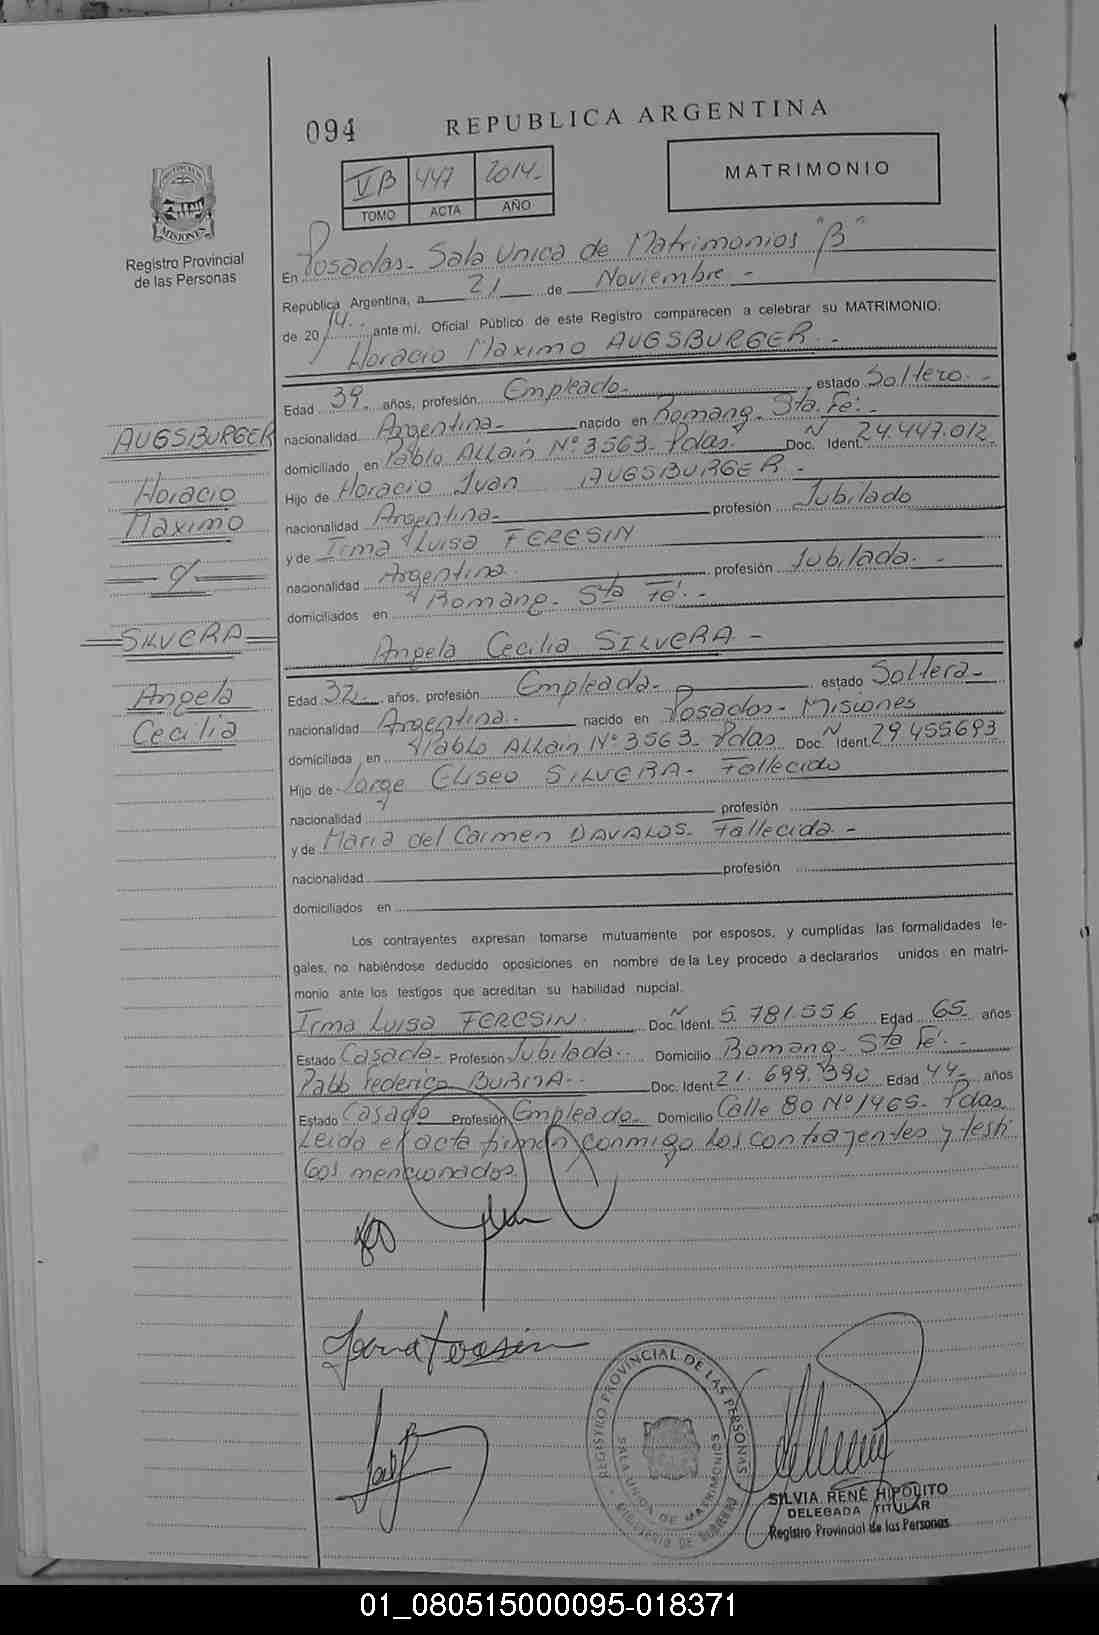 094
REPUBLICA ARGENTINA
MATRIMONIO
VB 447 2014.-
TOMO ACTA AÑO
MISIONES
Registro Provincial
de las Personas
En Posadas- Sala Unica de Matrimonios "B"
República Argentina, a 21 de Noviembre -
de 2014.- ante mi, Oficial Público de este Registro comparecen a celebrar su MATRIMONIO:
Horacio Maximo AUGSBURGER.-
Edad 39.- años, profesión Empleado- estado Soltero.-
AUGSBURGER
nacionalidad Argentina- nacido en Romang- Sta. Fé.-
domiciliado en Pablo Allain Nº 3563- Pdas. Doc. N Ident. 24.447.012-
Horacio
Hijo de Horacio Juan AUGSBURGER.-
Maximo
nacionalidad Argentina- profesión Jubilado
y de Irma Luisa FERESIN
nacionalidad Argentina. profesión Jubilada.-
domiciliados en Romang- Sta Fé.-
SILVERA
Angela Cecilia SILVERA-
Angela
Cecilia
Edad 32.- años, profesión Empleada- estado Soltera-
nacionalidad Argentina.- nacido en Posadas- Misiones
domiciliada en Pablo Allain Nº 3563- Pdas Doc. N Ident. 29.455693
Hijo de Jorge Eliseo SILVERA- Fallecido
nacionalidad profesión
y de Maria del Carmen DAVALOS- Fallecida.-
nacionalidad profesión
domiciliados en
Los contrayentes expresan tomarse mutuamente por esposos, y cumplidas las formalidades le-
gales, no habiéndose deducido oposiciones en nombre de la Ley procedo a declararlos unidos en matri-
monio ante los testigos que acreditan su habilidad nupcial.
Irma Luisa FERESIN. Doc. N Ident. 5.781.556 Edad 65 años
Estado Casada- Profesión Jubilada.- Domicilio Romang- Sta Fé.-
Pablo Federico Doc. Ident. 21.699.390 Edad 44- años
Estado Casado Profesión Empleado- Domicilio Calle 80 Nº 1465- Pdas
Leida el acta firman conmigo los contrayentes y testi
gos mencionados.
REGISTRO PROVINCIAL DE LAS PERSONAS
SALA UNICA DE MATRIMONIOS
MINISTERIO DE GOBIERNO
SILVIA RENÉ HIPOLITO
DELEGADA TITULAR
Registro Provincial de las Personas
01_080515000095-018371